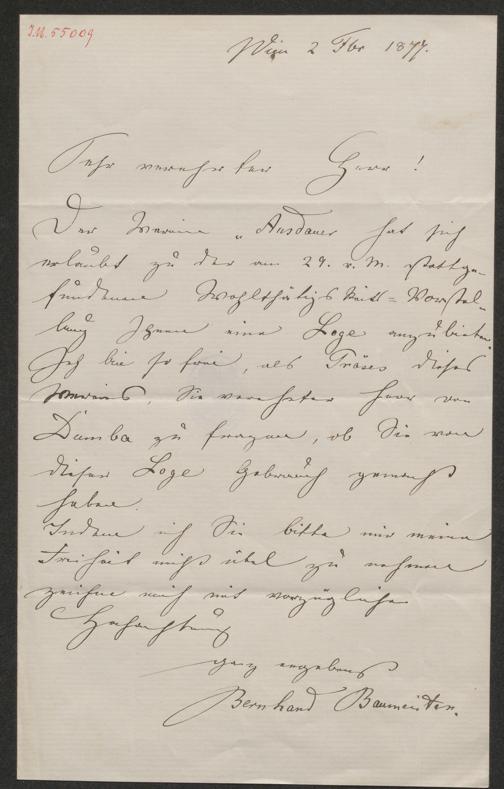 I.N. 55009
Wien 2 Fbr 1877.
Sehr verehrter Herr!
Der Verein „Ausdauer hat sich
erlaubt zu der am 29. v. M. stattge-
fundenen Wohlthätigkeits-Vorstel-
lung Ihnen eine Loge anzubieten.
Ich bin so frei, als Präses dieses
Vereins, Sie verehrter Herr von
Dumba zu fragen, ob Sie von
dieser Loge Gebrauch gemacht
haben.
Indem ich Sie bitte mir meine
Freiheit nicht übel zu nehmen
zeichne mich mit vorzüglicher
Hochachtung
ganz ergebenst
Bernhard Baumeister.